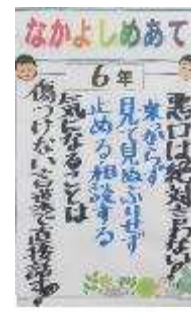 なかよしめあて
6年
悪口は絶対言わない!
来がらず
見て見ぬふりせず
止める相談する
気になることは
傷つけない言葉で直接話す